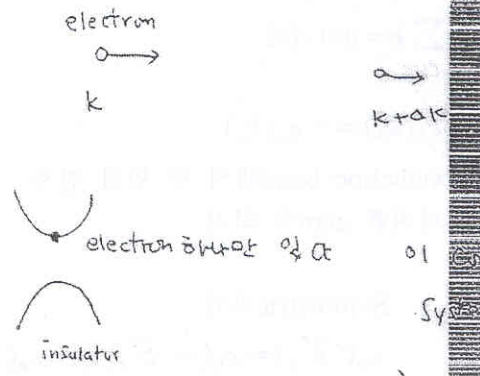 electron
k k+Δk
electron 하나만 있다 이
insulator